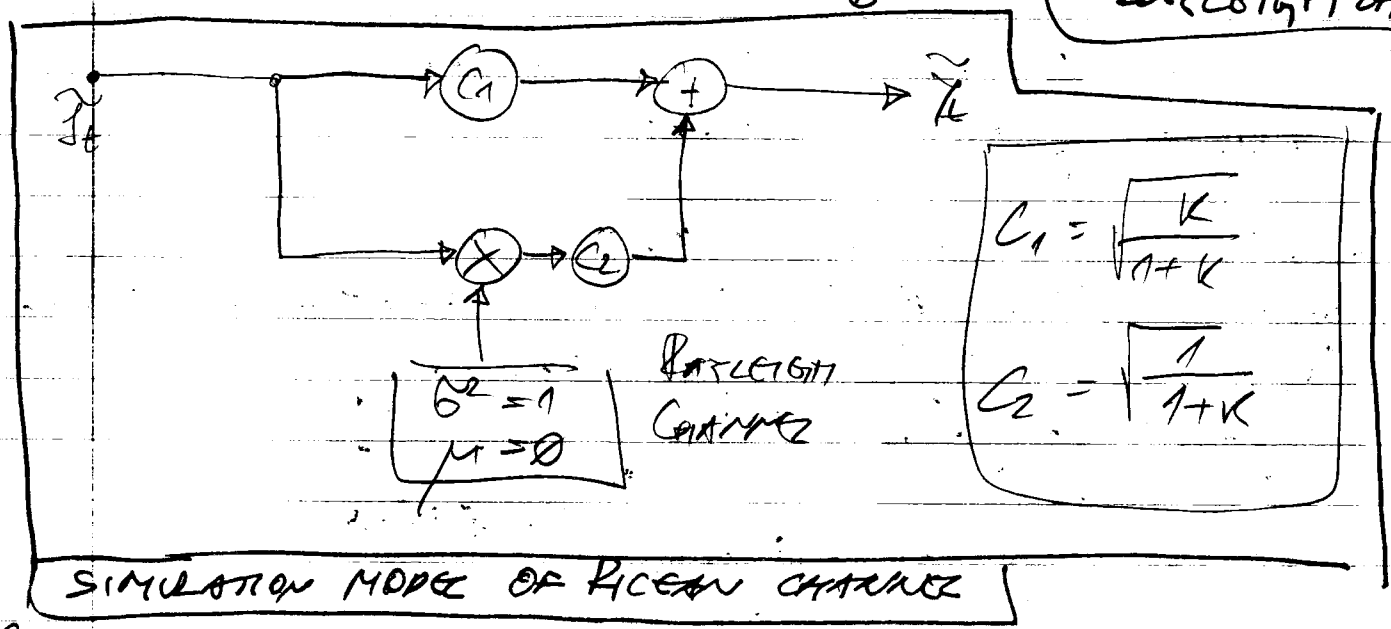 C1
+
s̃t
×
C2
C1 = √(K/(1+K))
σ̃² = 1
μ = 0
RAYLEIGH
CHANNEL
C2 = √(1/(1+K))
SIMULATION MODEL OF RICEAN CHANNEL